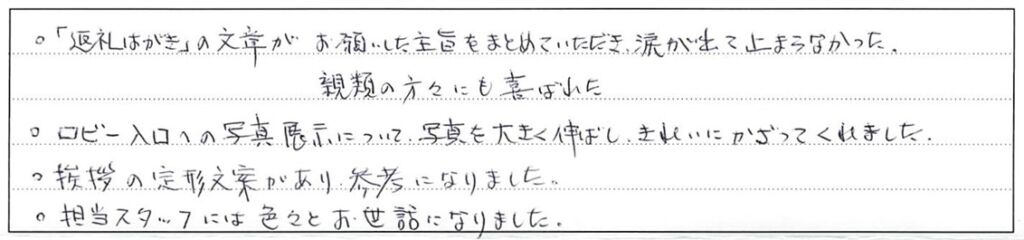 ○「返礼はがき」の文章が お願いした主旨をまとめていただき、涙が出て止まらなかった。
親類の方々にも喜ばれた
○ ロビー入口への写真展示について、写真を大きく伸ばし、きれいにかざってくれました。
○ 挨拶の定形文案があり、参考になりました。
○ 担当スタッフには色々とお世話になりました。